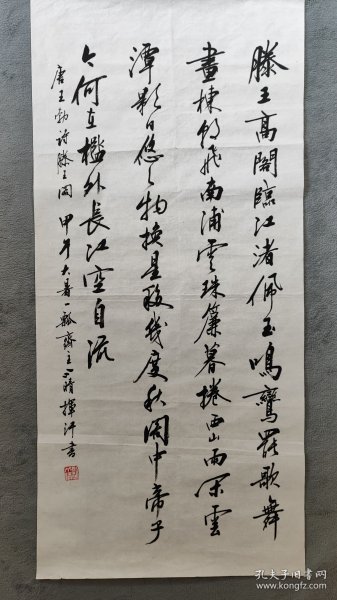 滕王高閣臨江渚佩玉鳴鸞罷歌舞
畫棟朝飛南浦雲珠簾暮捲西山雨閑雲
潭影日悠々物換星移幾度秋閣中帝子
今何在檻外長江空自流
唐王勃詩滕王閣 甲午大暑一瓢齋主晴揮汗書
孔夫子旧书网
www.kongfz.com